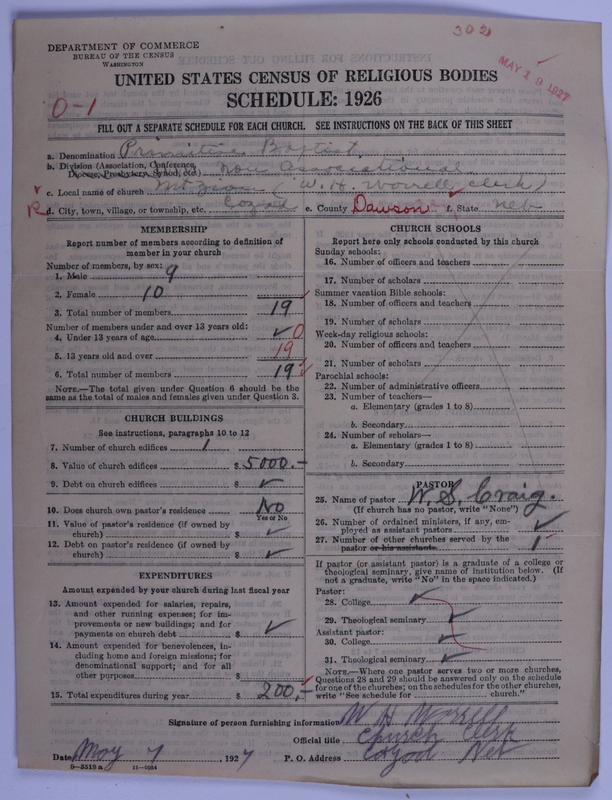 302
DEPARTMENT OF COMMERCE
BUREAU OF THE CENSUS
WASHINGTON
MAY 19 1927
UNITED STATES CENSUS OF RELIGIOUS BODIES
SCHEDULE: 1926
0-1
FILL OUT A SEPARATE SCHEDULE FOR EACH CHURCH. SEE INSTRUCTIONS ON THE BACK OF THIS SHEET
a. Denomination Primitive Baptist
b. Division (Association, Conference, Diocese, Presbytery, Synod, etc.) non associational
c. Local name of church Mt Zion (W. H. Worrell, Clerk)
R d. City, town, village, or township, etc. Cozad e. County Dawson f. State Neb
MEMBERSHIP
Report number of members according to definition of member in your church
Number of members, by sex:
1. Male 9
2. Female 10
3. Total number of members 19
Number of members under and over 13 years old:
4. Under 13 years of age ✓ 0
5. 13 years old and over 19
6. Total number of members 19
NOTE.—The total given under Question 6 should be the same as the total of males and females given under Question 3.
CHURCH BUILDINGS
See instructions, paragraphs 10 to 12
7. Number of church edifices 1
8. Value of church edifices $ 5000.—
9. Debt on church edifices $ ✓
10. Does church own pastor's residence No
Yes or No
11. Value of pastor's residence (if owned by church) $ ✓
12. Debt on pastor's residence (if owned by church) $ ✓
EXPENDITURES
Amount expended by your church during last fiscal year
13. Amount expended for salaries, repairs, and other running expenses; for improvements or new buildings; and for payments on church debt $ ✓
14. Amount expended for benevolences, including home and foreign missions; for denominational support; and for all other purposes $
15. Total expenditures during year $ 200,—
CHURCH SCHOOLS
Report here only schools conducted by this church
Sunday schools:
16. Number of officers and teachers
17. Number of scholars
Summer vacation Bible schools:
18. Number of officers and teachers
19. Number of scholars
Week-day religious schools:
20. Number of officers and teachers
21. Number of scholars
Parochial schools:
22. Number of administrative officers
23. Number of teachers—
a. Elementary (grades 1 to 8)
b. Secondary
24. Number of scholars—
a. Elementary (grades 1 to 8)
b. Secondary
PASTOR
25. Name of pastor W. S. Craig.
(If church has no pastor, write "None")
26. Number of ordained ministers, if any, employed as assistant pastors ✓
27. Number of other churches served by the pastor or his assistants 1
If pastor (or assistant pastor) is a graduate of a college or theological seminary, give name of institution below. (If not a graduate, write "No" in the space indicated.)
Pastor:
28. College ✓
29. Theological seminary ✓
Assistant pastor:
30. College ✓
31. Theological seminary ✓
NOTE.—Where one pastor serves two or more churches, Questions 28 and 29 should be answered only on the schedule for one of the churches; on the schedules for the other churches, write "See schedule for ........ church."
Signature of person furnishing information W H Worrell
Official title Church Clerk
Date May 7, 1927 P. O. Address Cozad Neb
8—5519 a 11—9084